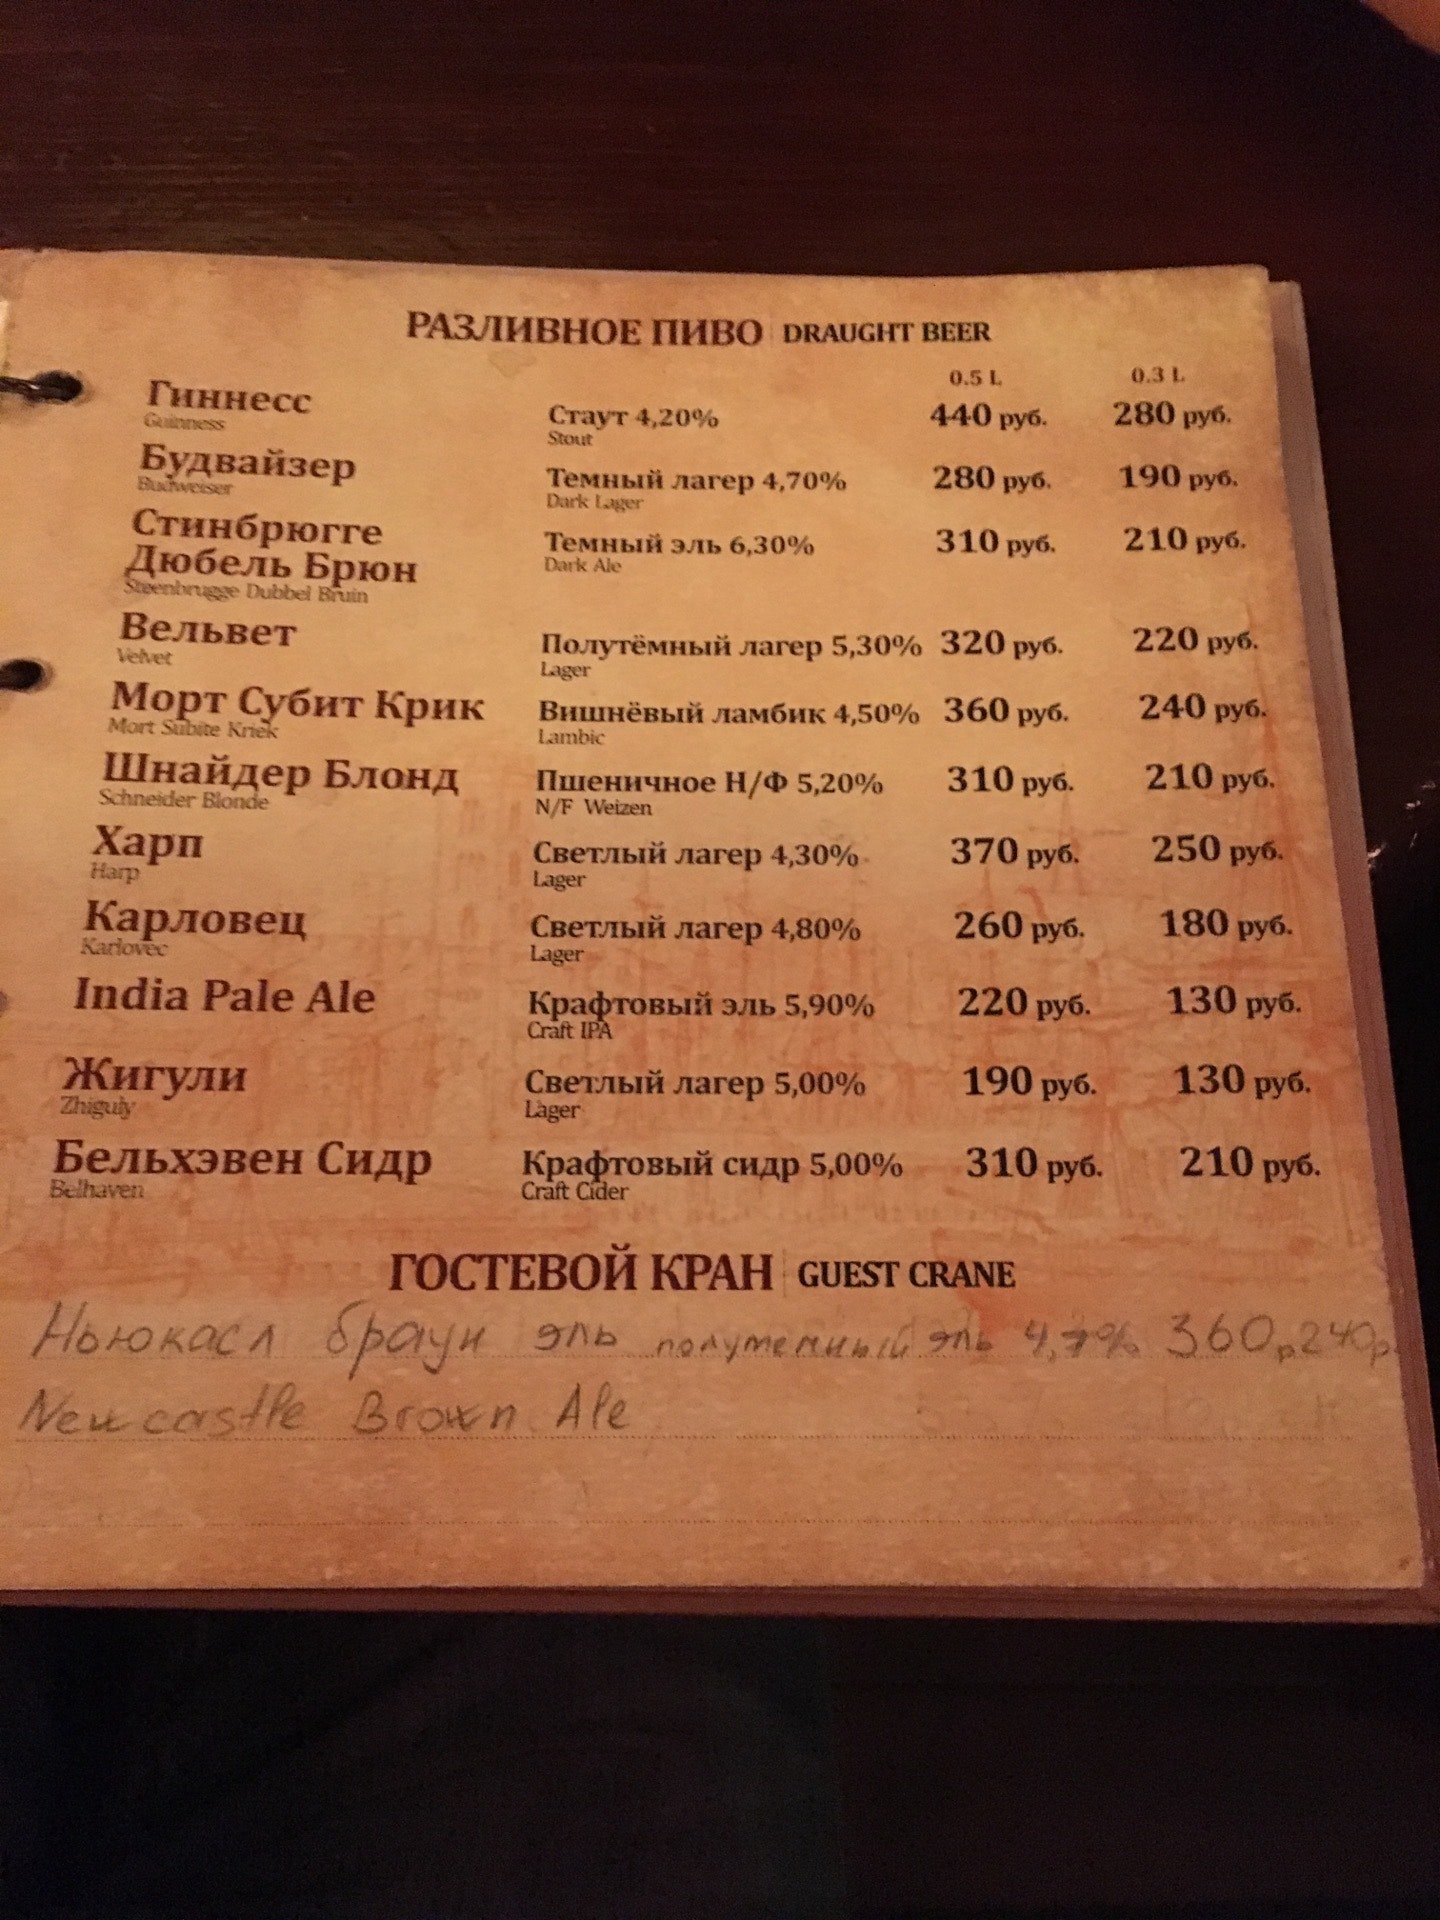 РАЗЛИВНОЕ ПИВО | DRAUGHT BEER
0.5 L 0.3 L
Гиннесс Стаут 4,20% 440 руб. 280 руб.
Guinness Stout
Будвайзер Темный лагер 4,70% 280 руб. 190 руб.
Budweiser Dark Lager
Стинбрюгге Темный эль 6,30% 310 руб. 210 руб.
Дюбель Брюн Dark Ale
Steenbrugge Dubbel Bruin
Вельвет Полутёмный лагер 5,30% 320 руб. 220 руб.
Velvet Lager
Морт Субит Крик Вишнёвый ламбик 4,50% 360 руб. 240 руб.
Mort Subite Kriek Lambic
Шнайдер Блонд Пшеничное Н/Ф 5,20% 310 руб. 210 руб.
Schneider Blonde N/F Weizen
Харп Светлый лагер 4,30% 370 руб. 250 руб.
Harp Lager
Карловец Светлый лагер 4,80% 260 руб. 180 руб.
Karlovec Lager
India Pale Ale Крафтовый эль 5,90% 220 руб. 130 руб.
Craft IPA
Жигули Светлый лагер 5,00% 190 руб. 130 руб.
Zhiguly Lager
Бельхэвен Сидр Крафтовый сидр 5,00% 310 руб. 210 руб.
Belhaven Craft Cider
ГОСТЕВОЙ КРАН | GUEST CRANE
Ньюкасл браун эль полутемный эль 4,7% 360р 240р.
Newcastle Brown Ale